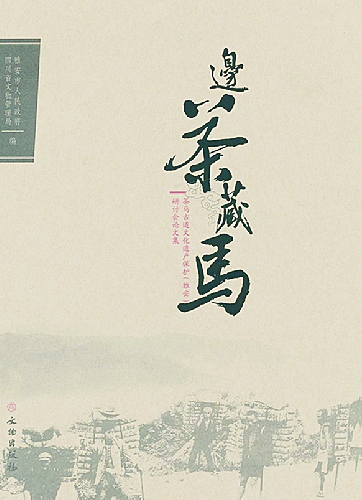 邊茶藏馬
茶马古道文化遗产保护（雅安）
研讨会论文集
雅安市人民政府
四川省文物管理局
编
文物出版社